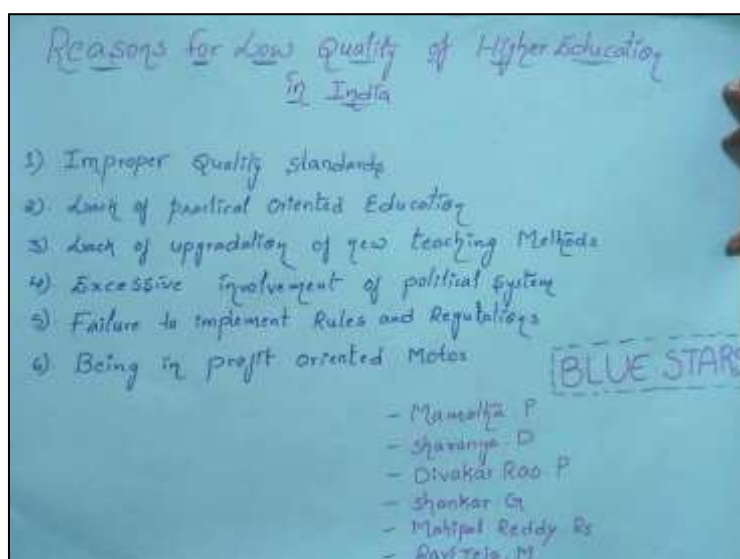 Reasons for Low Quality of Higher Education
in India
1) Improper Quality standards
2) Lack of practical oriented Education
3) Lack of upgradation of new teaching Methods
4) Excessive involvement of political system
5) Failure to implement Rules and Regulations
6) Being in profit oriented Motos
BLUE STARS
- Mamatha P
- Sharanya D
- Divakar Rao P
- Shankar G
- Mahipal Reddy Rs
- Ravi Teja M